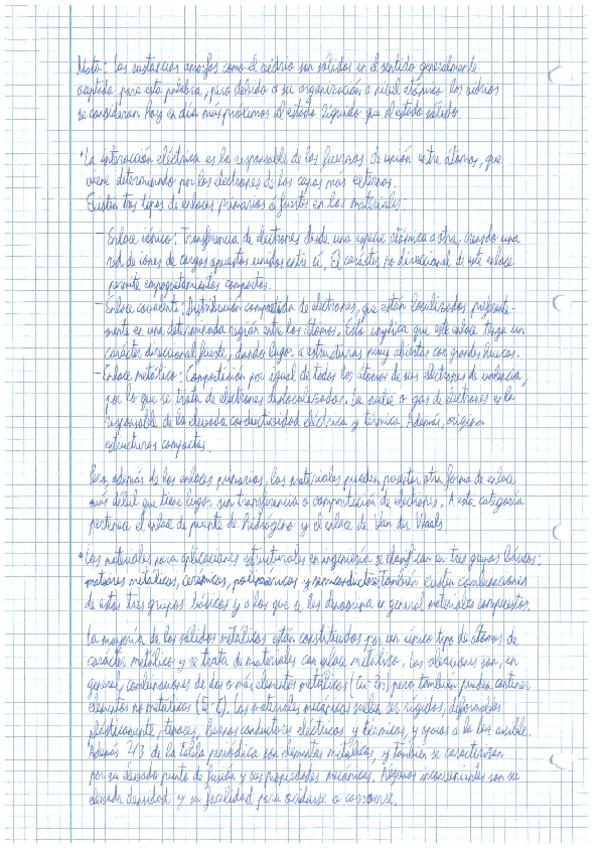 Nota: Las sustancias amorfas como el vidrio son sólidos en el sentido generalmente
aceptado para esta palabra, pero debido a su organización a nivel atómico los vidrios
se consideran hoy en día más próximos al estado líquido que al estado sólido.
• La interacción eléctrica es la responsable de las fuerzas de unión entre átomos, que
viene determinado por los electrones de las capas más externas.
Existen tres tipos de enlaces primarios o fuertes en los materiales:
- Enlace iónico: Transferencia de electrones desde una especie atómica a otra, creando una
red de iones de cargas opuestas unidos entre sí. El carácter no direccional de este enlace
permite empaquetamientos compactos.
- Enlace covalente: Distribución compartida de electrones, que están localizados preferente-
mente en una determinada región entre los átomos. Esto implica que este enlace tenga un
carácter direccional fuerte, dando lugar a estructuras muy abiertas con grandes huecos.
- Enlace metálico: Compartición por igual de todos los átomos de sus electrones de valencia,
por lo que se trata de electrones deslocalizados. La nube o gas de electrones es la
responsable de la elevada conductividad eléctrica y térmica. Además, originan
estructuras compactas.
Pero, además de los enlaces primarios, los materiales pueden presentar otra forma de enlace
más débil que tiene lugar sin transferencia o compartición de electrones. A esta categoría
pertenece el enlace de puente de hidrógeno y el enlace de Van der Waals.
• Los materiales para aplicaciones estructurales en ingeniería se clasifican en tres grupos básicos:
metálicos, cerámicos, poliméricos y semiconductores. También existen combinaciones
de estos tres grupos básicos y a los que se les denomina en general materiales compuestos.
La mayoría de los sólidos metálicos están constituidos por un único tipo de átomos de
carácter metálico y se trata de materiales con enlace metálico. Las aleaciones son, en
general, combinaciones de dos o más elementos metálicos (Cu-Zn) pero también pueden contener
elementos no metálicos (Fe-C). Los materiales suelen ser rígidos, deformables
plásticamente, tenaces, buenos conductores eléctricos y térmicos, y opacos a la luz visible.
Además 2/3 de la tabla periódica son elementos metálicos, y también se caracterizan
por su elevado punto de fusión y sus propiedades mecánicas. Algunos inconvenientes son su
elevada densidad y su facilidad para oxidarse o corroerse.